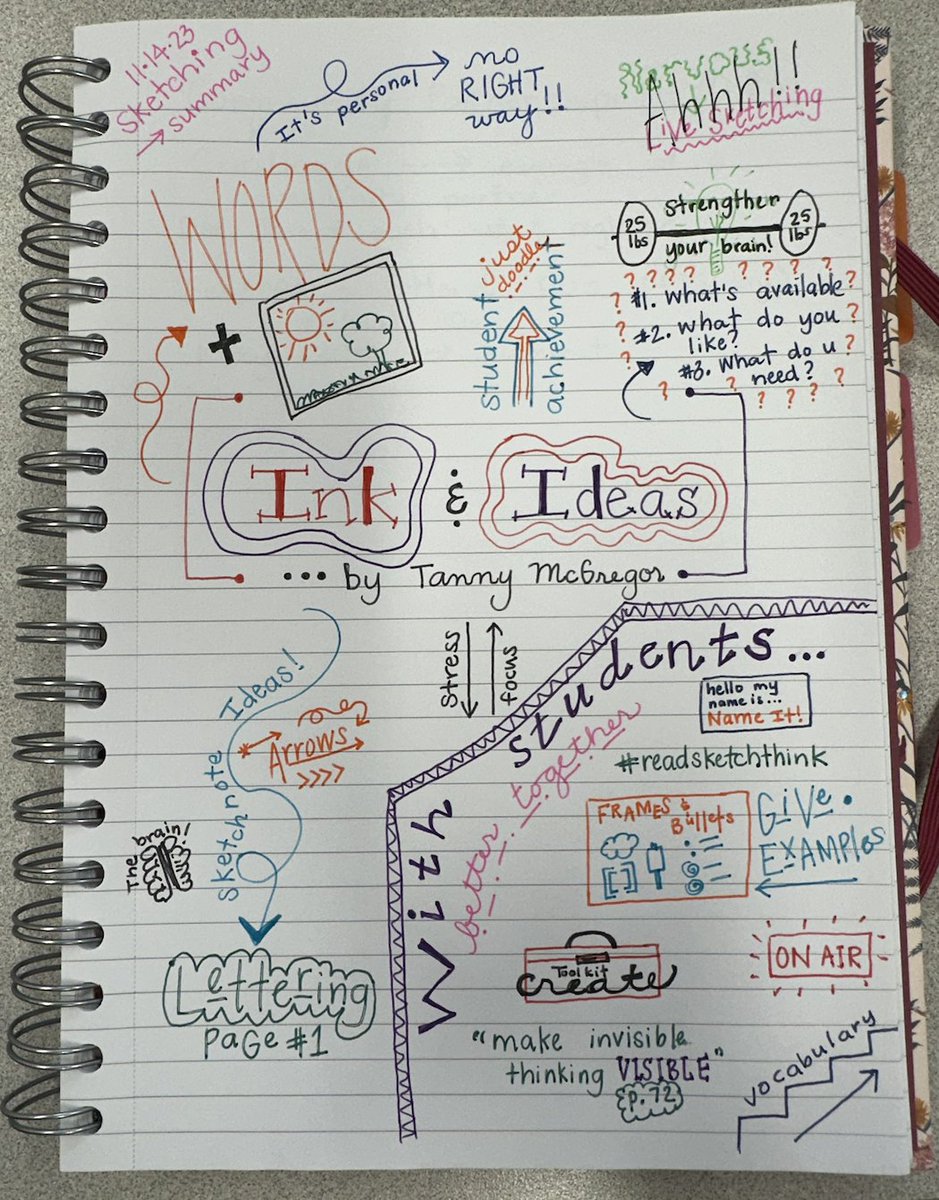 11-14-23
Sketching
→ summary
It's personal
no
RIGHT
way!!
Nervous
Ahhh!!
Live Sketching
WORDS
+
just
doodle
student
achievement
25
lbs
strengthen
your brain!
25
lbs
? ? ? ? ? ? ? ?
#1. What's available
#2. What do you
like?
#3. What do u
need?
Ink & Ideas
... by Tanny McGregor
stress
focus
sketchnote Ideas!
* Arrows
>>>>
The brain!
Lettering
PaGe #1
With students...
better together
hello my
name is...
Name It!
#readsketchthink
FRAMES &
Bullets
GiVe
EXAMPLEs
Toolkit
create
ON AIR
"make invisible
thinking VISIBLE"
p. 72
vocabulary